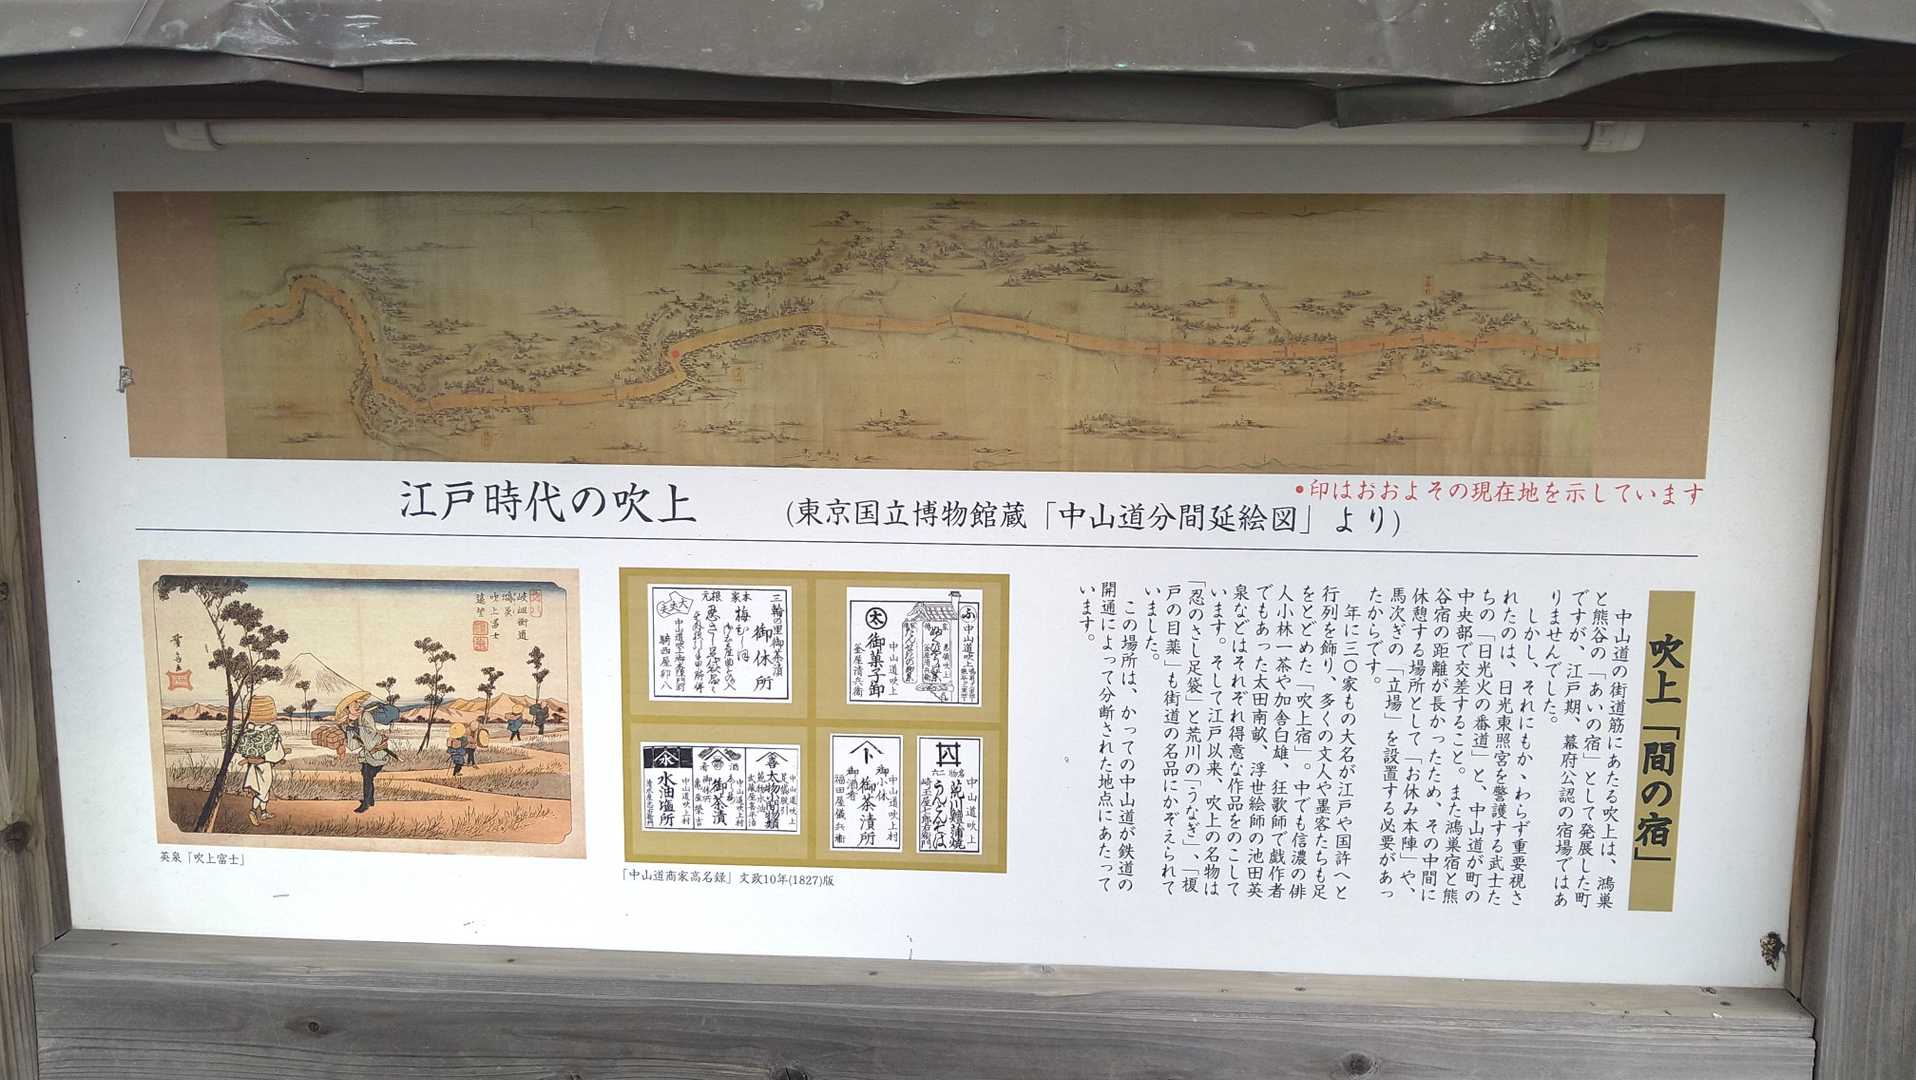 •印はおおよその現在地を示しています
江戸時代の吹上
(東京国立博物館蔵「中山道分間延絵図」より)
吹上「間の宿」
中山道の街道筋にあたる吹上は、鴻巣
と熊谷の「あいの宿」として発展した町
ですが、江戸期、幕府公認の宿場ではあ
りませんでした。
しかし、それにもかゝわらず重要視さ
れたのは、日光東照宮を警護する武士た
ちの「日光火の番道」と、中山道が町の
中央部で交差すること。また鴻巣宿と熊
谷宿の距離が長かったため、その中間に
休憩する場所として「お休み本陣」や、
馬次ぎの「立場」を設置する必要があっ
たからです。
年に三〇家もの大名が江戸や国許へと
行列を飾り、多くの文人や墨客たちも足
をとどめた「吹上宿」。中でも信濃の俳
人小林一茶や加舎白雄、狂歌師で戯作者
でもあった太田南畝、浮世絵師の池田英
泉などはそれぞれ得意な作品をのこして
います。そして江戸以来、吹上の名物は
「忍のさし足袋」と荒川の「うなぎ」、「榎
戸の目薬」も街道の名品にかぞえられて
いました。
この場所は、かっての中山道が鉄道の
開通によって分断された地点にあたって
います。
岐岨街道
鴻巣
吹上冨士
遠望
英泉「吹上富士」
三輪の里御茶漬
御休所
本家
根元
中山道吹上
太
御菓子卸
釜屋清兵衛
中山道吹上村
永
水油塩所
御茶漬
太物小間物類
中山道吹上村
御小休
御茶漬所
御酒肴
福田屋儀兵衛
中山道吹上
名物
荒川鰻蒲焼
うんどんそば
「中山道商家高名録」文政10年(1827)版